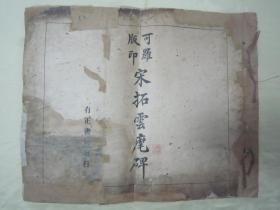 可羅版印
宋拓雲麾碑
有正書局發行